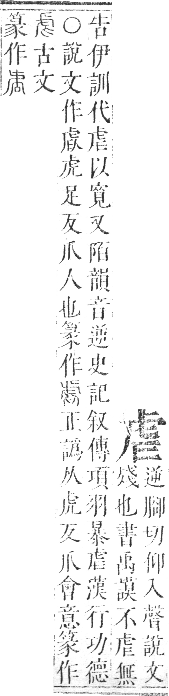 虐
逆腳切仰入聲說文
殘也書禹謨不虐無
告伊訓代虐以寬又陌韻音逆史記叙傳項羽暴虐漢行功德
○說文作虐虎足反爪人也篆作正譌从虎反爪會意篆作
古文
篆作